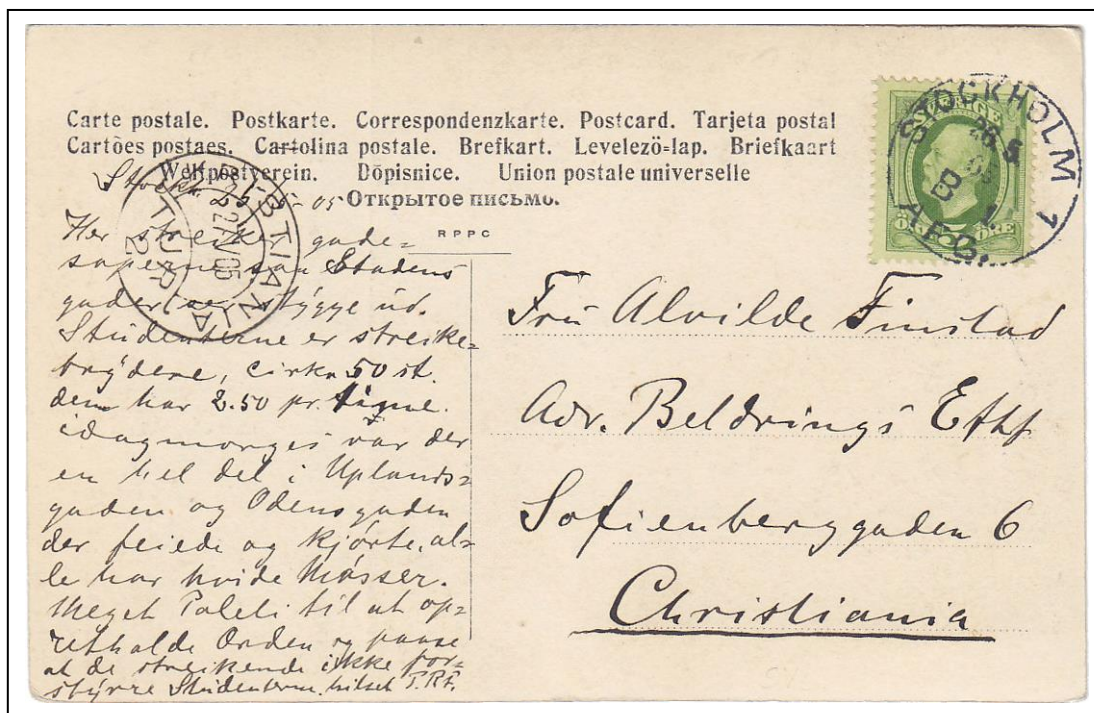 Carte postale. Postkarte. Correspondenzkarte. Postcard. Tarjeta postal
Cartões postaes. Cartolina postale. Brefkart. Levelezö-lap. Briefkaart
Weltpostverein. Dôpisnice. Union postale universelle
Открытое письмо.
RPPC
Stockh. 25-5-05
Her streiker gade-
soperne saa Stadens
gader ser stygge ud.
Studenterne er streike-
brydere, cirka 50 st.
dem har 2.50 pr. time.
idagmorges var der
en hel del i Uplands-
gaden og Odensgaden
der feiede og kjörte, al-
le har hvide Mösser.
Meget Politi til at op-
rethalde Orden og passe
at de streikende ikke for-
styrre Studenterne. hilset T.R.F.
STOCKHOLM 1
26 5
05
B
AFG.
ÖRE ÖRE
KR-BTIANIA
27 V 05
TUR
2
Fru Alvilde Finstad
Adr. Beldrings Efthf
Sofienberggaden 6
Christiania